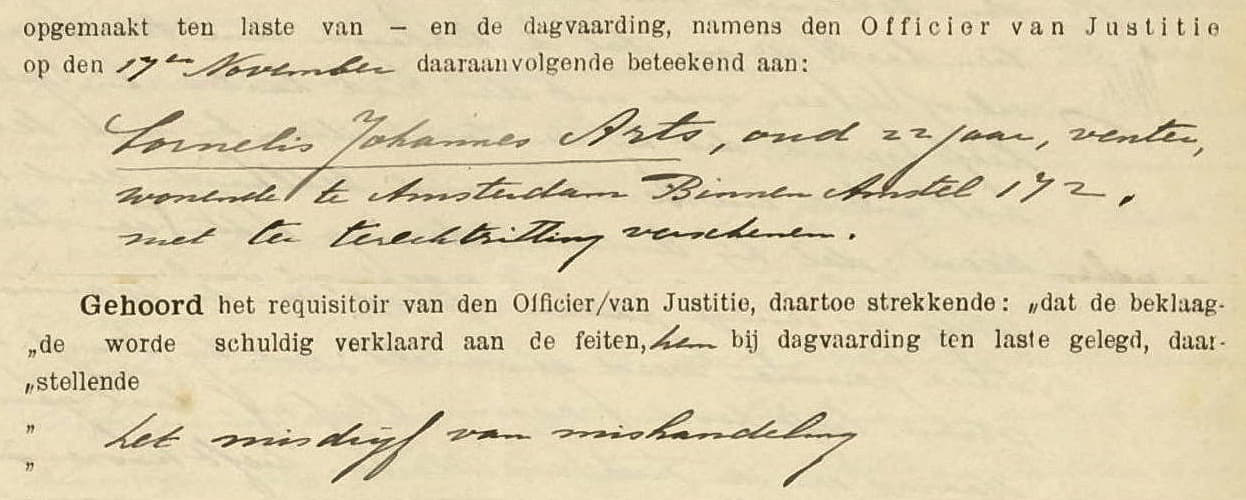 opgemaakt ten laste van – en de dagvaarding, namens den Officier van Justitie
op den 17den November daaraanvolgende beteekend aan:
Cornelis Johannes Arts, oud 22 jaar, venter,
wonende te Amsterdam Binnen Amstel 172.
niet ter terechtzitting verschenen.
Gehoord het requisitoir van den Officier/van Justitie, daartoe strekkende: „dat de beklaag-
„de worde schuldig verklaard aan de feiten, hem bij dagvaarding ten laste gelegd, daar-
„stellende
" het misdrijf van mishandeling
"